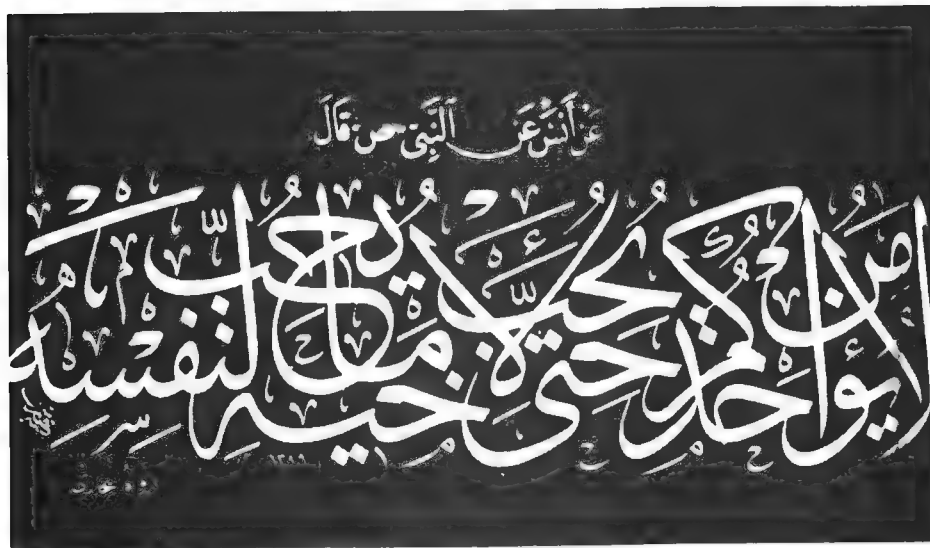 عَنْ أَنَسٍ عَنِ النَّبِيِّ ص قَالَ
لا يؤمن احدكم حتى يحب لاخيه ما يحب لنفسه